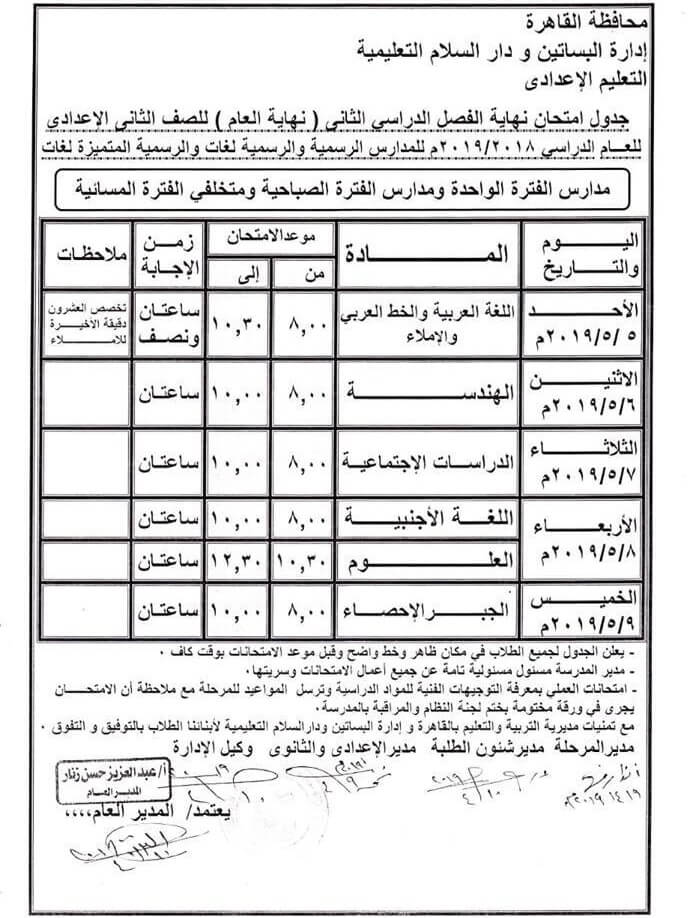 محافظة القاهرة
إدارة البساتين و دار السلام التعليمية
التعليم الإعدادى
جدول امتحان نهاية الفصل الدراسي الثانى ( نهاية العام ) للصف الثانى الإعدادى
للعام الدراسي ٢٠١٩/٢٠١٨م للمدارس الرسمية والرسمية لغات والرسمية المتميزة لغات
مدارس الفترة الواحدة ومدارس الفترة الصباحية ومتخلفي الفترة المسائية
اليوم والتاريخ المادة موعد الامتحان زمن الإجابة ملاحظات
من إلى
الأحد ٢٠١٩/٥/٥م اللغة العربية والخط العربي والإملاء ٨,٠٠ ١٠,٣٠ ساعتان ونصف تخصص العشرون دقيقة الأخيرة للاملاء
الاثنين ٢٠١٩/٥/٦م الهندسة ٨,٠٠ ١٠,٠٠ ساعتان
الثلاثاء ٢٠١٩/٥/٧م الدراسات الإجتماعية ٨,٠٠ ١٠,٠٠ ساعتان
الأربعاء ٢٠١٩/٥/٨م اللغة الأجنبية ٨,٠٠ ١٠,٠٠ ساعتان
العلوم ١٠,٣٠ ١٢,٣٠ ساعتان
الخميس ٢٠١٩/٥/٩م الجبر الإحصاء ٨,٠٠ ١٠,٠٠ ساعتان
- يعلن الجدول لجميع الطلاب في مكان ظاهر وخط واضح وقبل موعد الامتحانات بوقت كاف ٠
- مدير المدرسة مسئول مسئولية تامة عن جميع أعمال الامتحانات وسريتها٠
- امتحانات العملي بمعرفة التوجيهات الفنية للمواد الدراسية وترسل المواعيد للمرحلة مع ملاحظة أن الامتحان
يجرى في ورقة مختومة بختم لجنة النظام والمراقبة بالمدرسة٠
مع تمنيات مديرية التربية والتعليم بالقاهرة و إدارة البساتين ودارالسلام التعليمية لأبنائنا الطلاب بالتوفيق و التفوق ٠
مديرالمرحلة مديرشئون الطلبة مديرالإعدادى والثانوى وكيل الإدارة
أ/ عبدالعزيز حسن زنار
المدير العام
يعتمد/ المدير العام،،،،